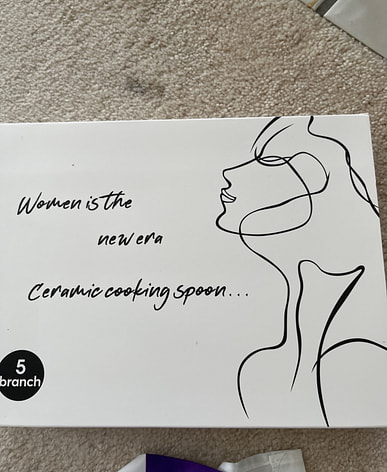 Women is the
new era
Ceramic cooking spoon...
5
branch